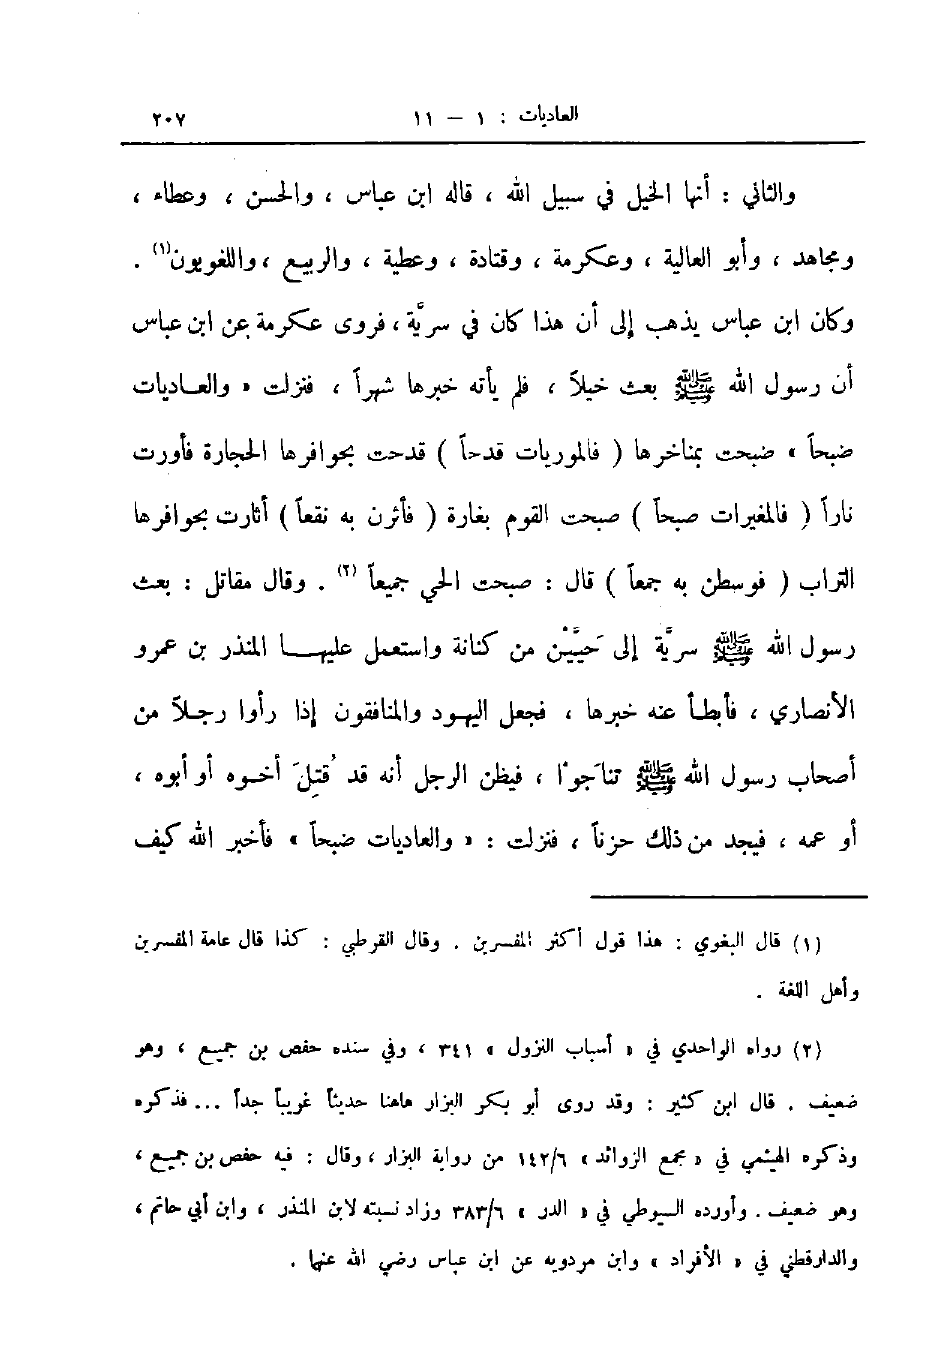 العاديات : ١ – ١١ ٢٠٧
والثاني : أنها الخيل في سبيل الله ، قاله ابن عباس ، والحسن ، وعطاء ،
ومجاهد ، وأبو العالية ، وعكرمة ، وقتادة ، وعطية ، والربيع ، واللغويون(١) .
وكان ابن عباس يذهب إلى أن هذا كان في سريَّة ، فروى عكرمة عن ابن عباس
أن رسول الله ﷺ بعث خيلاً ، فلم يأته خبرها شهراً ، فنزلت « والعـاديات
ضبحاً » ضبحت بمناخرها ( فالموريات قدحاً ) قدحت بحوافرها الحجارة فأورت
ناراً ( فالمغيرات صبحاً ) صبحت القوم بغارة ( فأثرن به نقعاً ) أثارت بحوافرها
التراب ( فوسطن به جمعاً ) قال : صبحت الحي جميعاً (٢) . وقال مقاتل : بعث
رسول الله ﷺ سريَّة إلى حَيَّيْن من كنانة واستعمل عليهـــا المنذر بن عمرو
الأنصاري ، فأبطـأ عنه خبرها ، فجعل اليهود والمنافقون إذا رأوا رجـلاً من
أصحاب رسول الله ﷺ تناَجوْا ، فيظن الرجل أنه قد قُتِلَ أخـوه أو أبوه ،
أو عمه ، فيجد من ذلك حزناً ، فنزلت : « والعاديات ضبحاً » فأخبر الله كيف
(١) قال البغوي : هذا قول أكثر المفسرين . وقال القرطبي : كذا قال عامة المفسرين
وأهل اللغة .
(٢) رواه الواحدي في « أسباب النزول » ٣٤١ ، وفي سنده حفص بن جميع ، وهو
ضعيف . قال ابن كثير : وقد روى أبو بكر البزار هاهنا حديثاً غريباً جداً ... فذكره
وذكره الهيثمي في « مجمع الزوائد » ١٤٢/٦ من رواية البزار ، وقال : فيه حفص بن جميع ،
وهو ضعيف . وأورده السيوطي في « الدر » ٣٨٣/٦ وزاد نسبته لابن المنذر ، وابن أبي حاتم ،
والدارقطني في « الأفراد » وابن مردويه عن ابن عباس رضي الله عنهما .